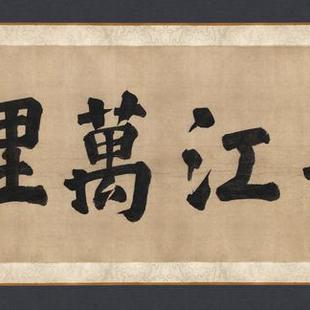 江萬里